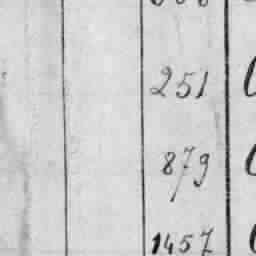 251
879
1457